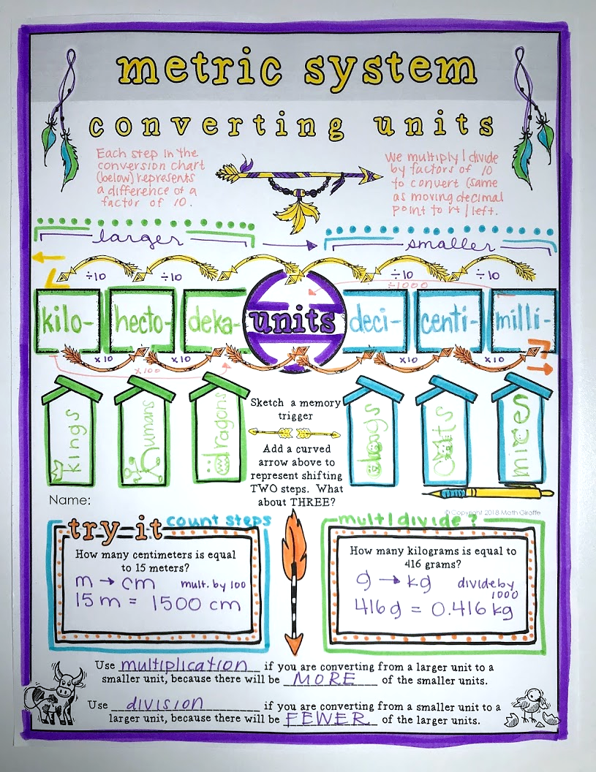 metric system
converting units
Each step in the
conversion chart
(below) represents
a difference of a
factor of 10.
We multiply/divide
by factors of 10
to convert (same
as moving decimal
point to rt/left.
larger
smaller
÷10
÷10
÷10
÷10
÷1000
kilo-
hecto-
deka-
units
deci-
centi-
milli-
x10
x10
x10
x10
x100
kings
humans
dragons
Sketch a memory
trigger
dogs
cats
mices
Add a curved
arrow above to
represent shifting
TWO steps. What
about THREE?
Name:
© Copyright 2018 Math Giraffe
try-it
count steps
How many centimeters is equal
to 15 meters?
m → cm mult. by 100
15 m = 1500 cm
mult/divide?
How many kilograms is equal to
416 grams?
g → kg divide by
1000
416 g = 0.416 kg
Use multiplication if you are converting from a larger unit to a
smaller unit, because there will be MORE of the smaller units.
Use division if you are converting from a smaller unit to a
larger unit, because there will be FEWER of the larger units.